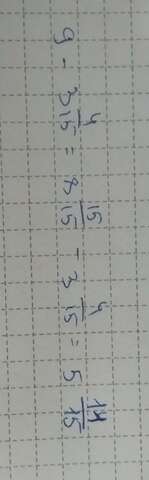 9 - 3 4/15 = 8 15/15 - 3 4/15 = 5 11/15